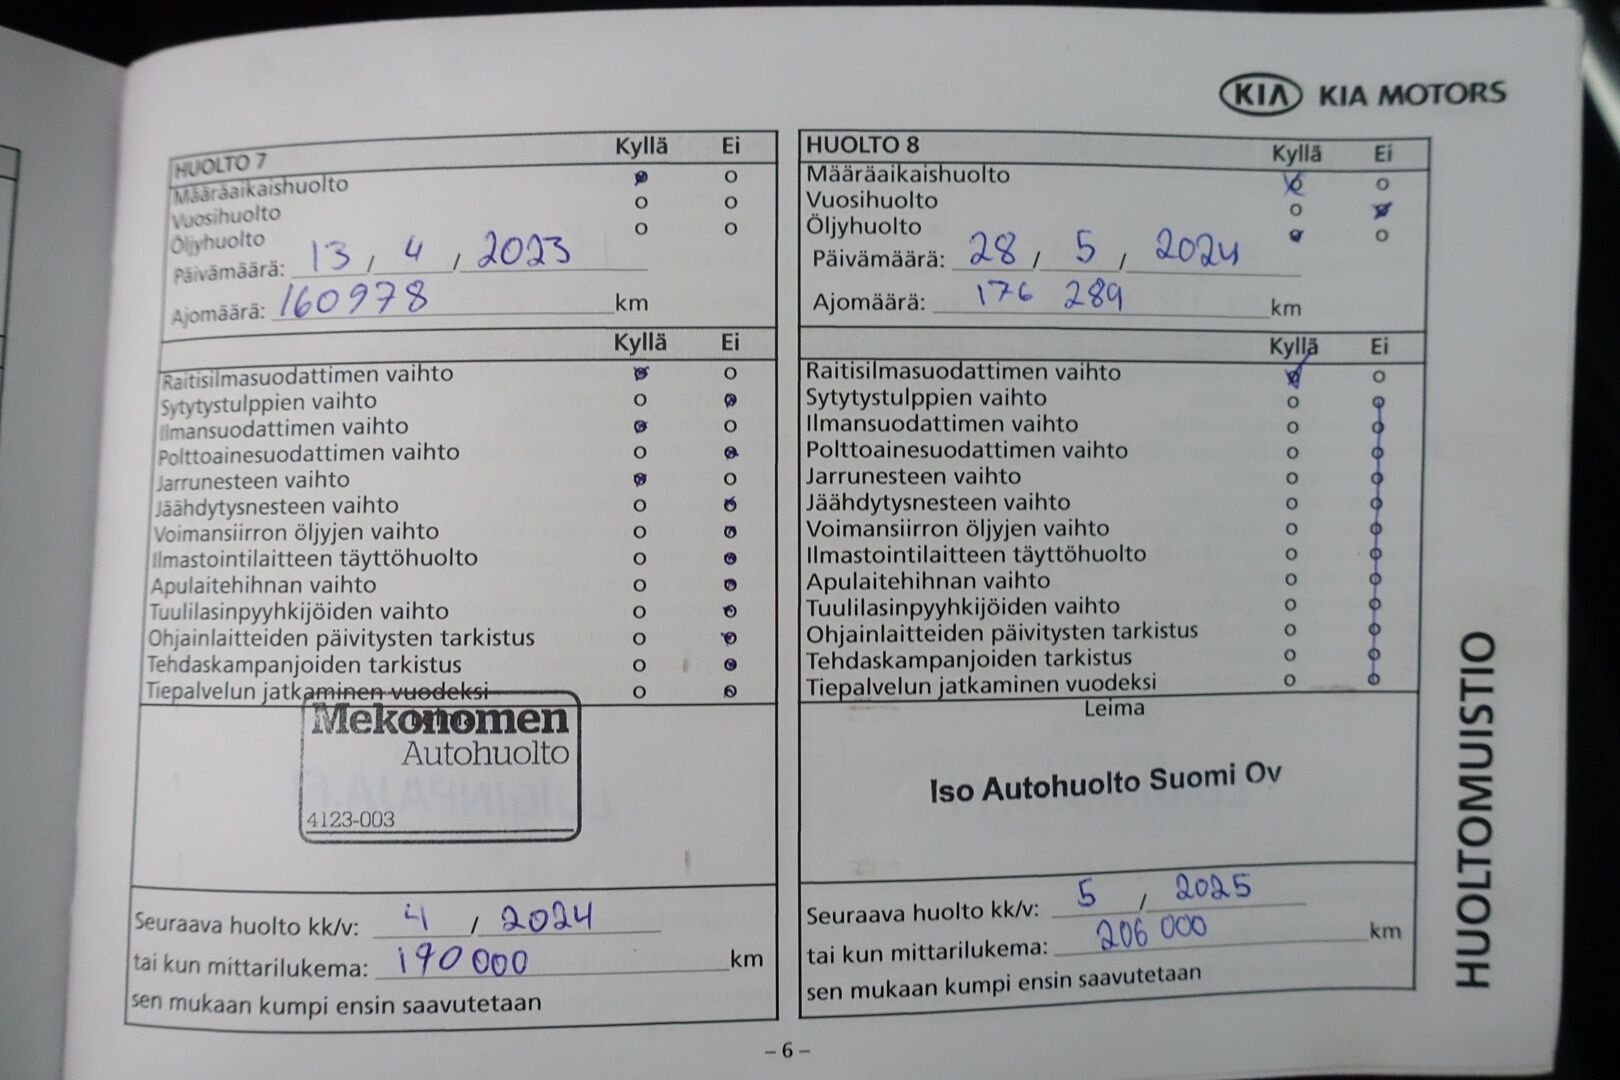 KIA KIA MOTORS
HUOLTO 7 Kyllä Ei
Määräaikaishuolto
Vuosihuolto
Öljyhuolto
Päivämäärä: 13 / 4 / 2023
Ajomäärä: 160978 km
Kyllä Ei
Raitisilmasuodattimen vaihto
Sytytystulppien vaihto
Ilmansuodattimen vaihto
Polttoainesuodattimen vaihto
Jarrunesteen vaihto
Jäähdytysnesteen vaihto
Voimansiirron öljyjen vaihto
Ilmastointilaitteen täyttöhuolto
Apulaitehihnan vaihto
Tuulilasinpyyhkijöiden vaihto
Ohjainlaitteiden päivitysten tarkistus
Tehdaskampanjoiden tarkistus
Tiepalvelun jatkaminen vuodeksi
Mekonomen
Autohuolto
4123-003
Seuraava huolto kk/v: 4 / 2024
tai kun mittarilukema: 190 000 km
sen mukaan kumpi ensin saavutetaan
HUOLTO 8 Kyllä Ei
Määräaikaishuolto
Vuosihuolto
Öljyhuolto
Päivämäärä: 28 / 5 / 2024
Ajomäärä: 176 289 km
Kyllä Ei
Raitisilmasuodattimen vaihto
Sytytystulppien vaihto
Ilmansuodattimen vaihto
Polttoainesuodattimen vaihto
Jarrunesteen vaihto
Jäähdytysnesteen vaihto
Voimansiirron öljyjen vaihto
Ilmastointilaitteen täyttöhuolto
Apulaitehihnan vaihto
Tuulilasinpyyhkijöiden vaihto
Ohjainlaitteiden päivitysten tarkistus
Tehdaskampanjoiden tarkistus
Tiepalvelun jatkaminen vuodeksi
Leima
Iso Autohuolto Suomi Oy
Seuraava huolto kk/v: 5 / 2025
tai kun mittarilukema: 206 000 km
sen mukaan kumpi ensin saavutetaan
HUOLTOMUISTIO
– 6 –